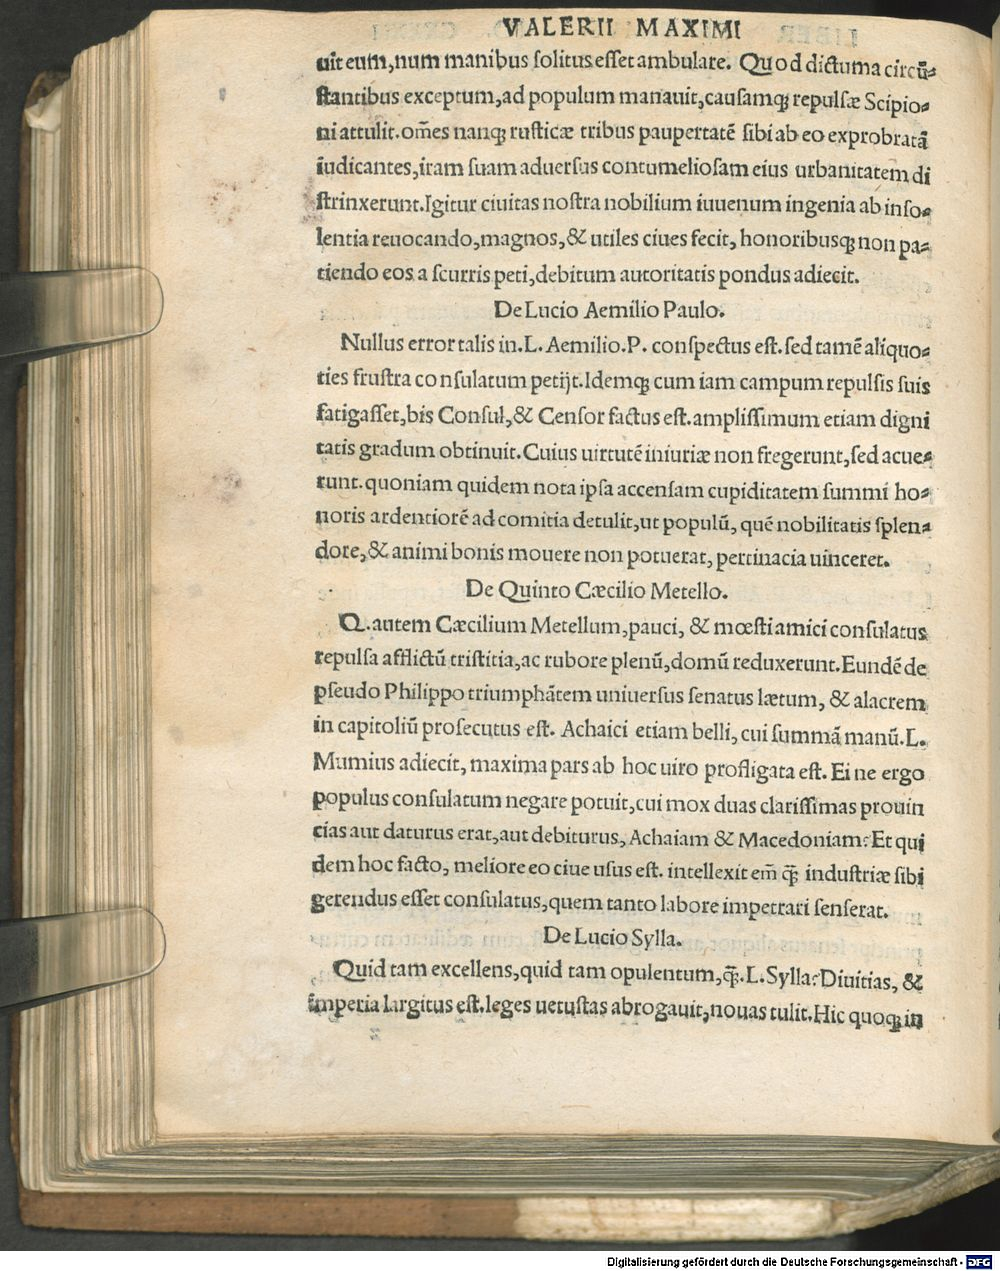 VALERII MAXIMI
uit eum,num manibus solitus esset ambulare. Quod dictum a circũ-
stantibus exceptum,ad populum manauit,causamqꝫ repulsæ Scipio-
ni attulit.om̃es nanqꝫ rusticæ tribus paupertatẽ sibi ab eo exprobratã
iudicantes,iram suam aduersus contumeliosam eius urbanitatem di
strinxerunt.Igitur ciuitas nostra nobilium iuuenum ingenia ab inso-
lentia reuocando,magnos,& utiles ciues fecit, honoribusqꝫ non pa-
tiendo eos a scurris peti,debitum autoritatis pondus adiecit.
De Lucio Aemilio Paulo.
Nullus error talis in.L. Aemilio.P. conspectus est. sed tamẽ aliquo-
ties frustra consulatum petijt.Idemqꝫ cum iam campum repulsis suis
fatigasset,bis Consul,& Censor factus est.amplissimum etiam digni
tatis gradum obtinuit.Cuius uirtutẽ iniuriæ non fregerunt,sed acue-
runt.quoniam quidem nota ipsa accensam cupiditatem summi ho-
noris ardentiorẽ ad comitia detulit,ut populũ, quẽ nobilitatis splen-
dore,& animi bonis mouere non potuerat, pertinacia uinceret.
De Quinto Cæcilio Metello.
Q.autem Cæcilium Metellum,pauci, & mœsti amici consulatus
repulsa afflictũ tristitia,ac rubore plenũ,domũ reduxerunt.Eundẽ de
pseudo Philippo triumphãtem uniuersus senatus lætum, & alacrem
in capitoliũ prosecutus est. Achaici etiam belli, cui summã manũ.L.
Mumius adiecit, maxima pars ab hoc uiro profligata est. Ei ne ergo
populus consulatum negare potuit,cui mox duas clarissimas prouin
cias aut daturus erat,aut debiturus, Achaiam & Macedoniam? Et qui
dem hoc facto, meliore eo ciue usus est. intellexit em̃ q̃ industriæ sibi
gerendus esset consulatus,quem tanto labore impetrari senserat.
De Lucio Sylla.
Quid tam excellens,quid tam opulentum,q̃.L.Sylla?Diuitias, &
imperia largitus est.leges uetustas abrogauit,nouas tulit.Hic quoqꝫ in
Digitalisierung gefördert durch die Deutsche Forschungsgemeinschaft - DFG